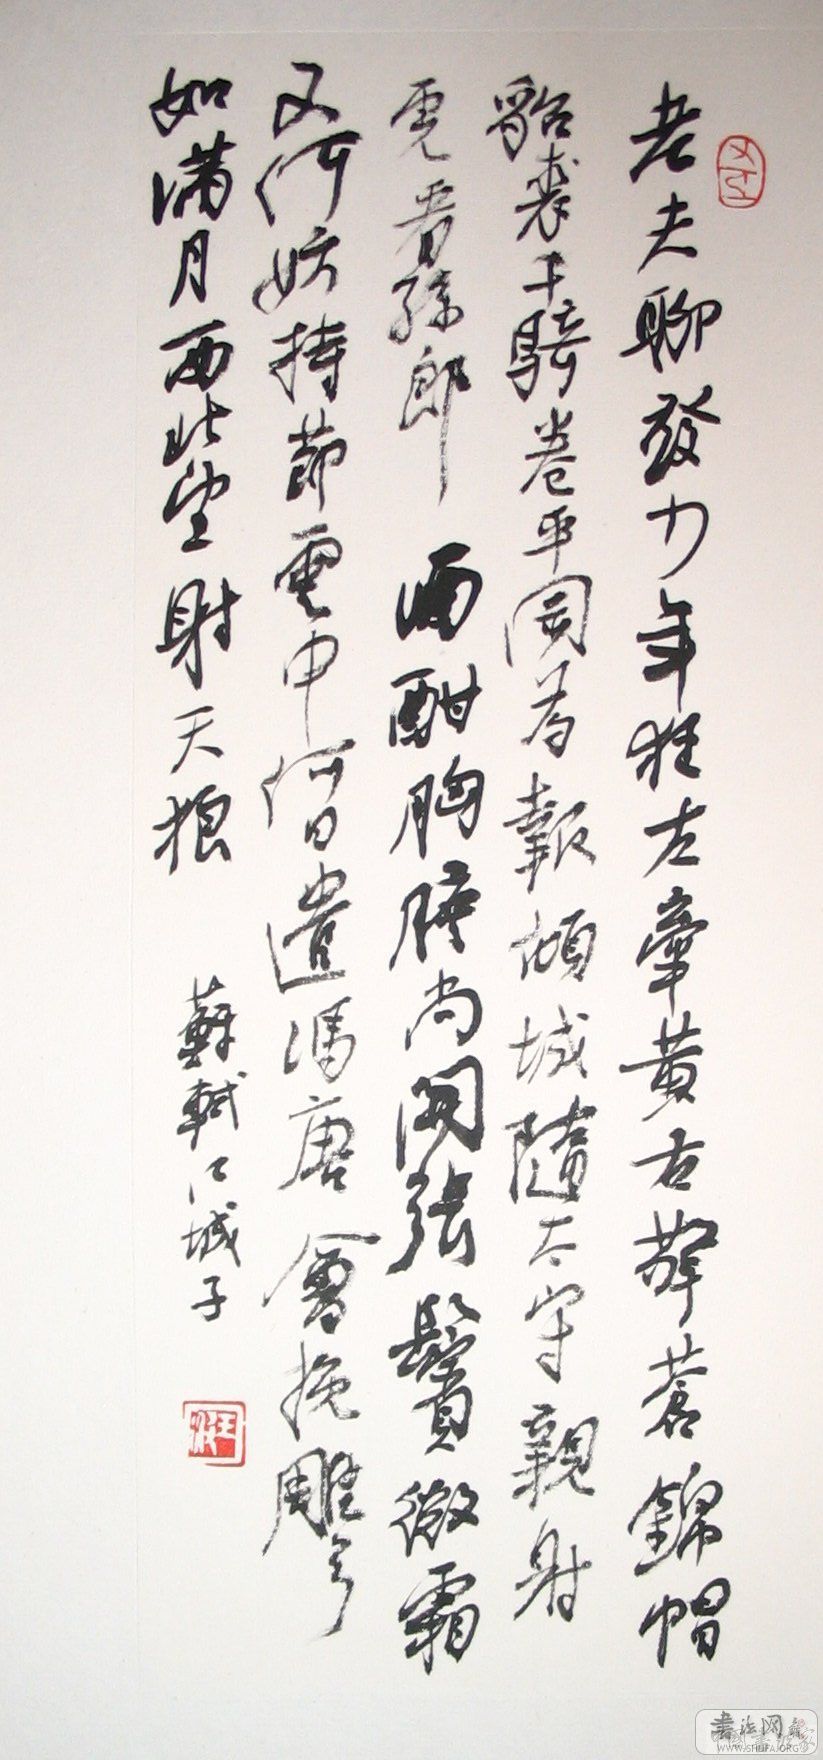 老夫聊發少年狂左牽黄右擎蒼錦帽
貂裘千騎卷平岡為報傾城隨太守親射
虎看孫郎 酒酣胸膽尚開張鬢微霜
又何妨持節雲中何日遣馮唐 會挽雕弓
如满月西北望射天狼
蘇軾江城子
書法网
WWW.SHUFA.ORG